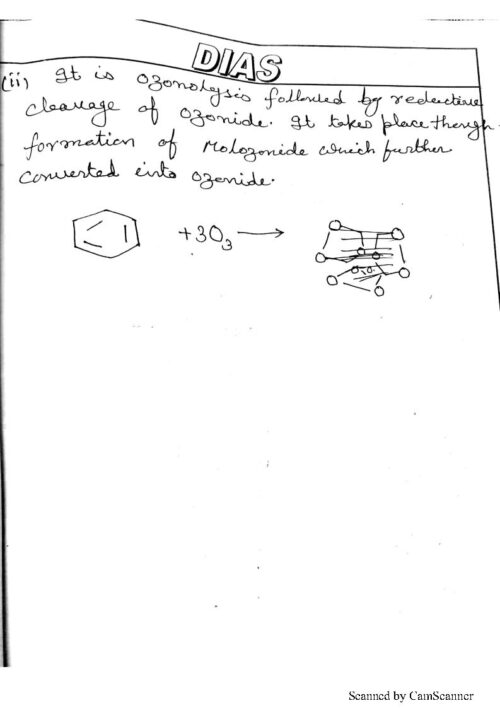 DIAS
(ii) It is ozonolysis followed by reductive
cleavage of ozonide. It takes place though
formation of Molozonide which further
converted into ozonide.
+3O₃ ⟶
Scanned by CamScanner